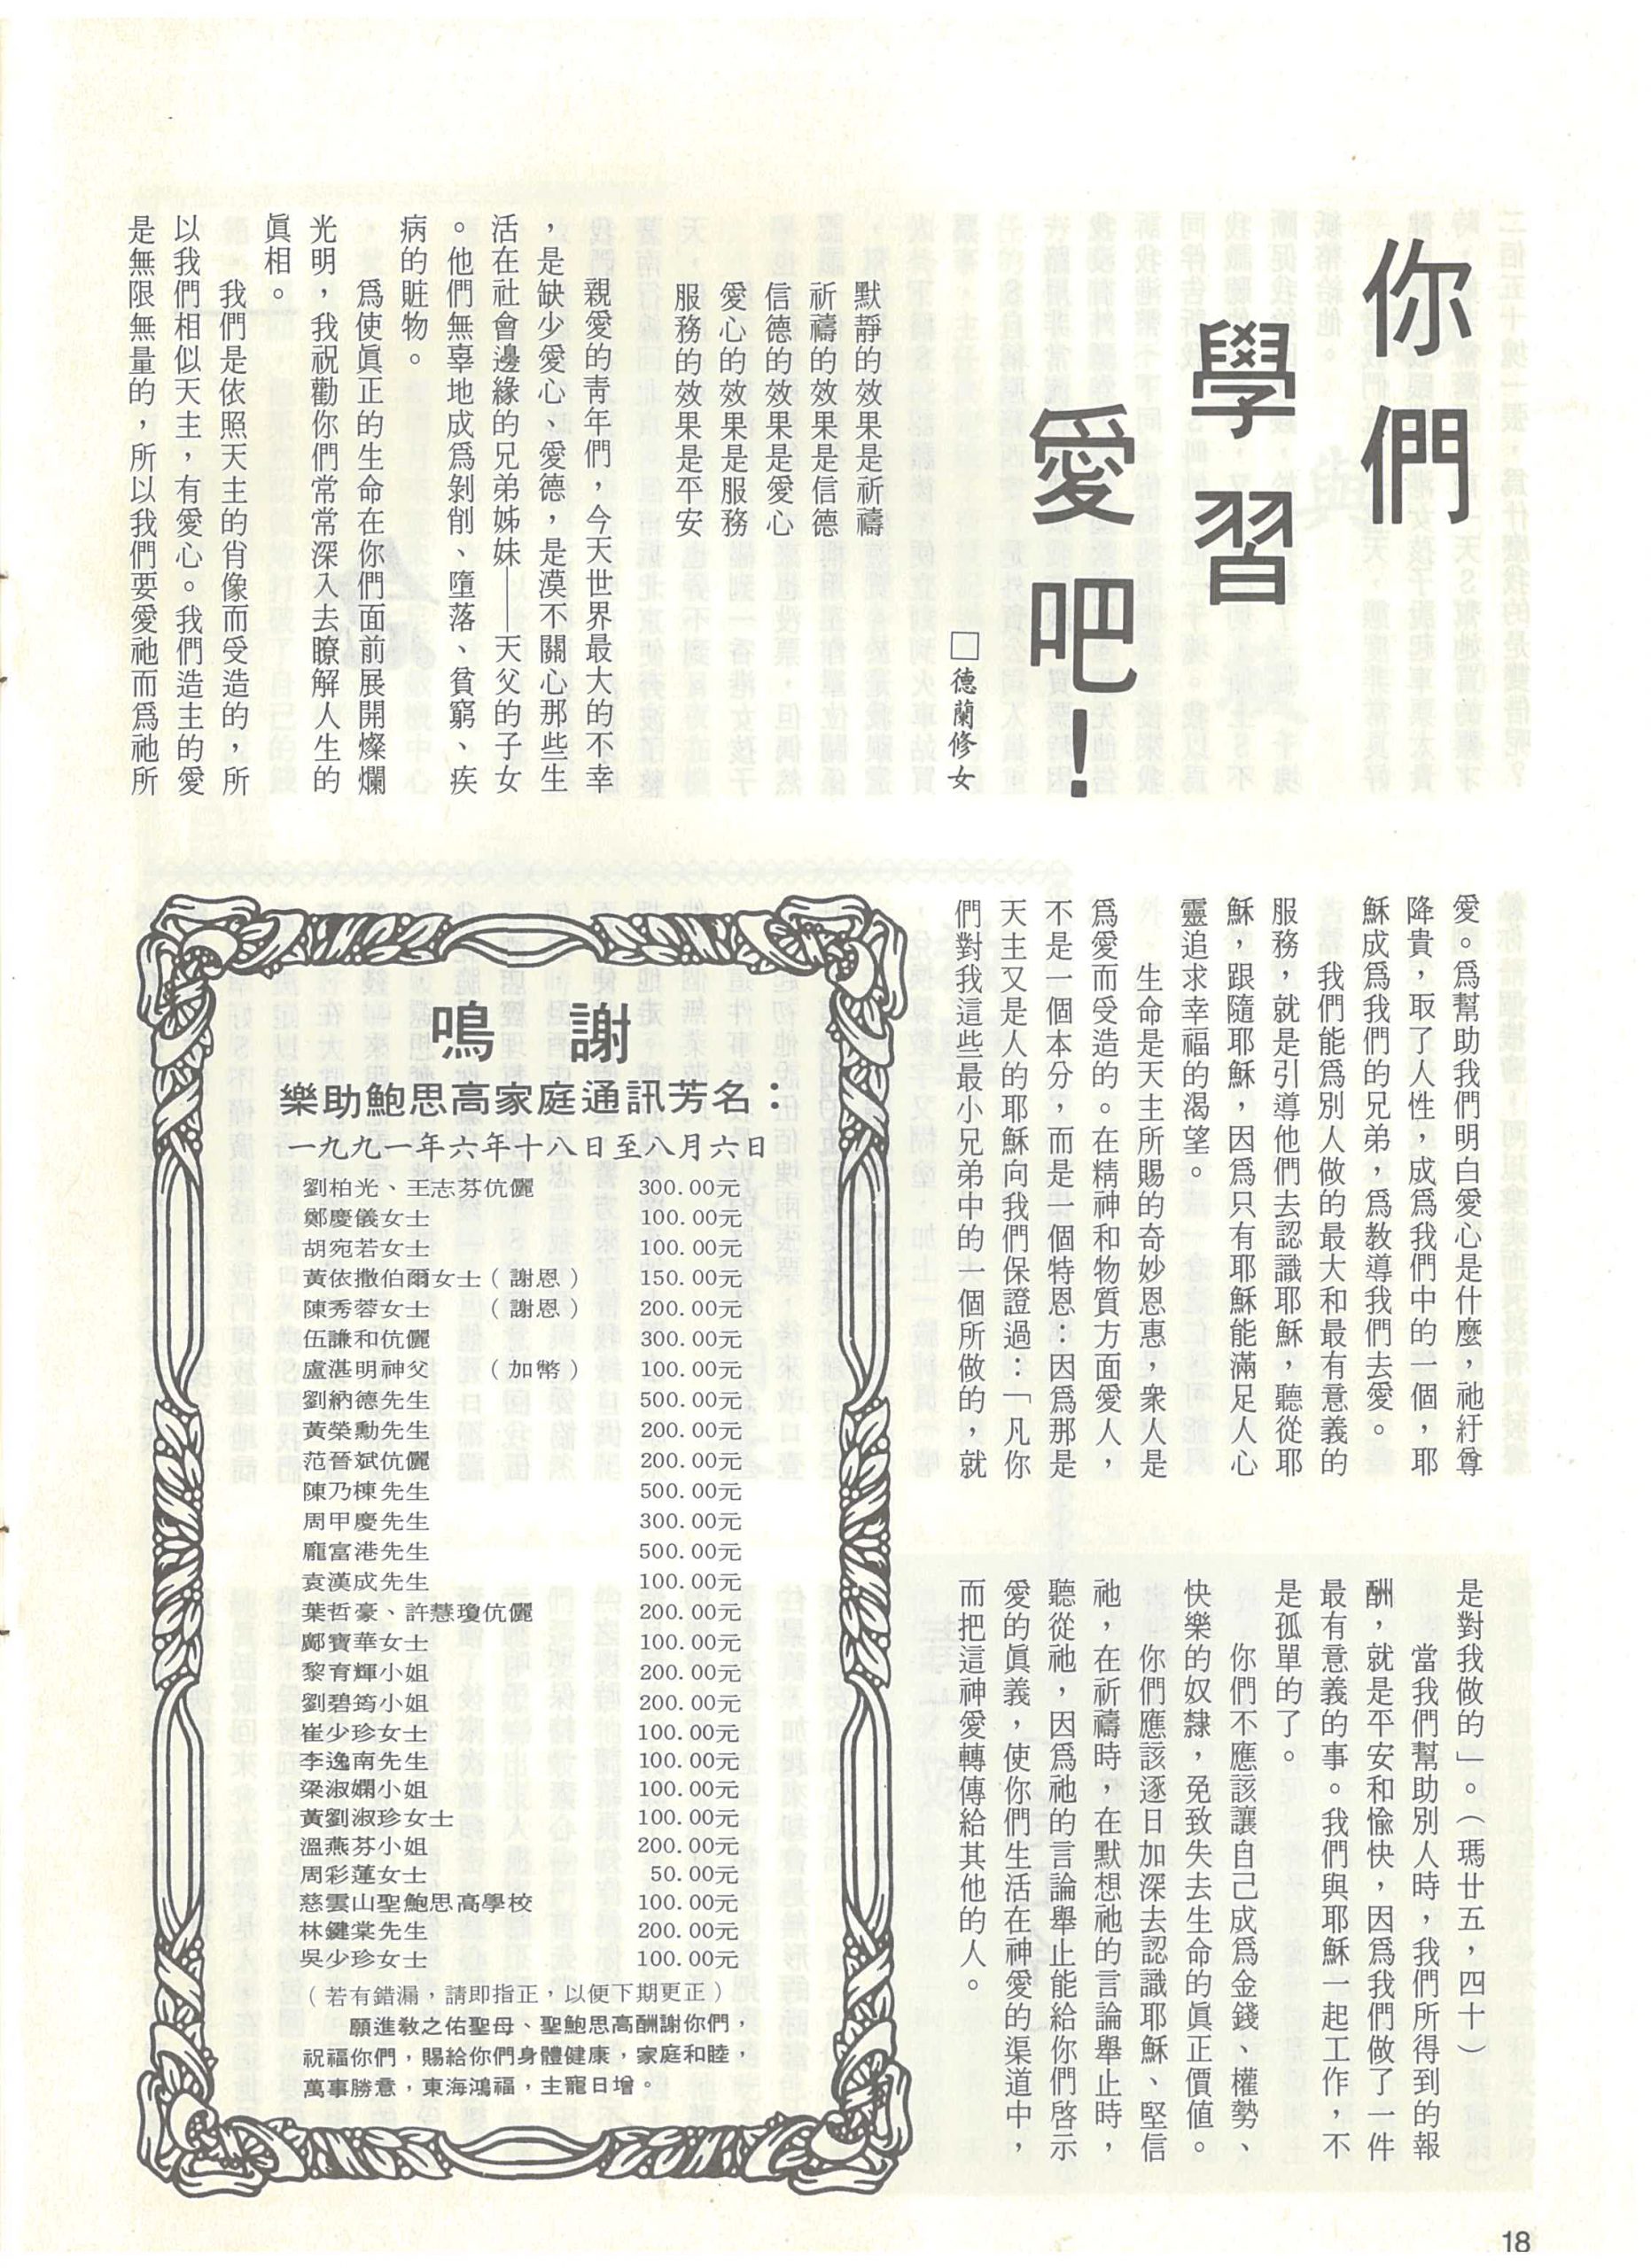 你們
學習
愛吧！
□德蘭修女
默靜的效果是祈禱
祈禱的效果是信德
信德的效果是愛心
愛心的效果是服務
服務的效果是平安
親愛的青年們，今天世界最大的不幸
，是缺少愛心、愛德，是漠不關心那些生
活在社會邊緣的兄弟姊妹——天父的子女
。他們無辜地成爲剝削、墮落、貧窮、疾
病的賍物。
爲使眞正的生命在你們面前展開燦爛
光明，我祝勸你們常常深入去瞭解人生的
眞相。
我們是依照天主的肖像而受造的，所
以我們相似天主，有愛心。我們造主的愛
是無限無量的，所以我們要愛祂而爲祂所
愛。爲幫助我們明白愛心是什麼，祂紆尊
降貴，取了人性，成爲我們中的一個，耶
穌成爲我們的兄弟，爲教導我們去愛。
我們能爲別人做的最大和最有意義的
服務，就是引導他們去認識耶穌，聽從耶
穌，跟隨耶穌，因爲只有耶穌能滿足人心
靈追求幸福的渴望。
生命是天主所賜的奇妙恩惠，衆人是
爲愛而受造的。在精神和物質方面愛人，
不是一個本分，而是一個特恩：因爲那是
天主又是人的耶穌向我們保證過：「凡你
們對我這些最小兄弟中的一個所做的，就
是對我做的」。（瑪廿五，四十）
當我們幫助別人時，我們所得到的報
酬，就是平安和愉快，因爲我們做了一件
最有意義的事。我們與耶穌一起工作，不
是孤單的了。
你們不應該讓自己成爲金錢、權勢、
快樂的奴隸，免致失去生命的眞正價値。
你們應該逐日加深去認識耶穌、堅信
祂，在祈禱時，在默想祂的言論舉止時，
聽從祂，因爲祂的言論舉止能給你們啓示
愛的眞義，使你們生活在神愛的渠道中，
而把這神愛轉傳給其他的人。
鳴　謝
樂助鮑思高家庭通訊芳名：
一九九一年六年十八日至八月六日
劉柏光、王志芬伉儷 300.00元
鄭慶儀女士 100.00元
胡宛若女士 100.00元
黃依撒伯爾女士（謝恩） 150.00元
陳秀蓉女士（謝恩） 200.00元
伍謙和伉儷 300.00元
盧湛明神父（加幣） 100.00元
劉納德先生 500.00元
黃榮勳先生 200.00元
范晉斌伉儷 200.00元
陳乃棟先生 500.00元
周甲慶先生 300.00元
龐富港先生 500.00元
袁漢成先生 100.00元
葉哲豪、許慧瓊伉儷 200.00元
鄺寶華女士 100.00元
黎育輝小姐 200.00元
劉碧筠小姐 200.00元
崔少珍女士 100.00元
李逸南先生 100.00元
梁淑嫻小姐 100.00元
黃劉淑珍女士 100.00元
溫燕芬小姐 200.00元
周彩蓮女士 50.00元
慈雲山聖鮑思高學校 100.00元
林鍵棠先生 200.00元
吳少珍女士 100.00元
（若有錯漏，請即指正，以便下期更正）
願進教之佑聖母、聖鮑思高酬謝你們，
祝福你們，賜給你們身體健康，家庭和睦，
萬事勝意，東海鴻福，主寵日增。
18